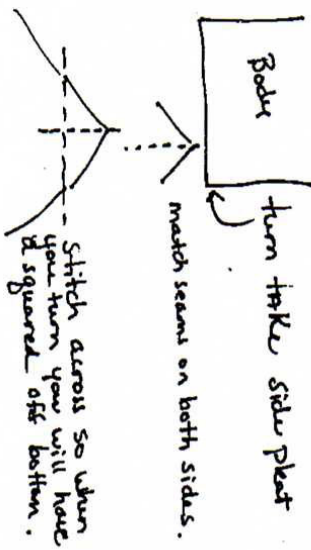 Body
turn take side pleat
match seams on both sides.
stitch across so when
you turn you will have
a squared off bottom.